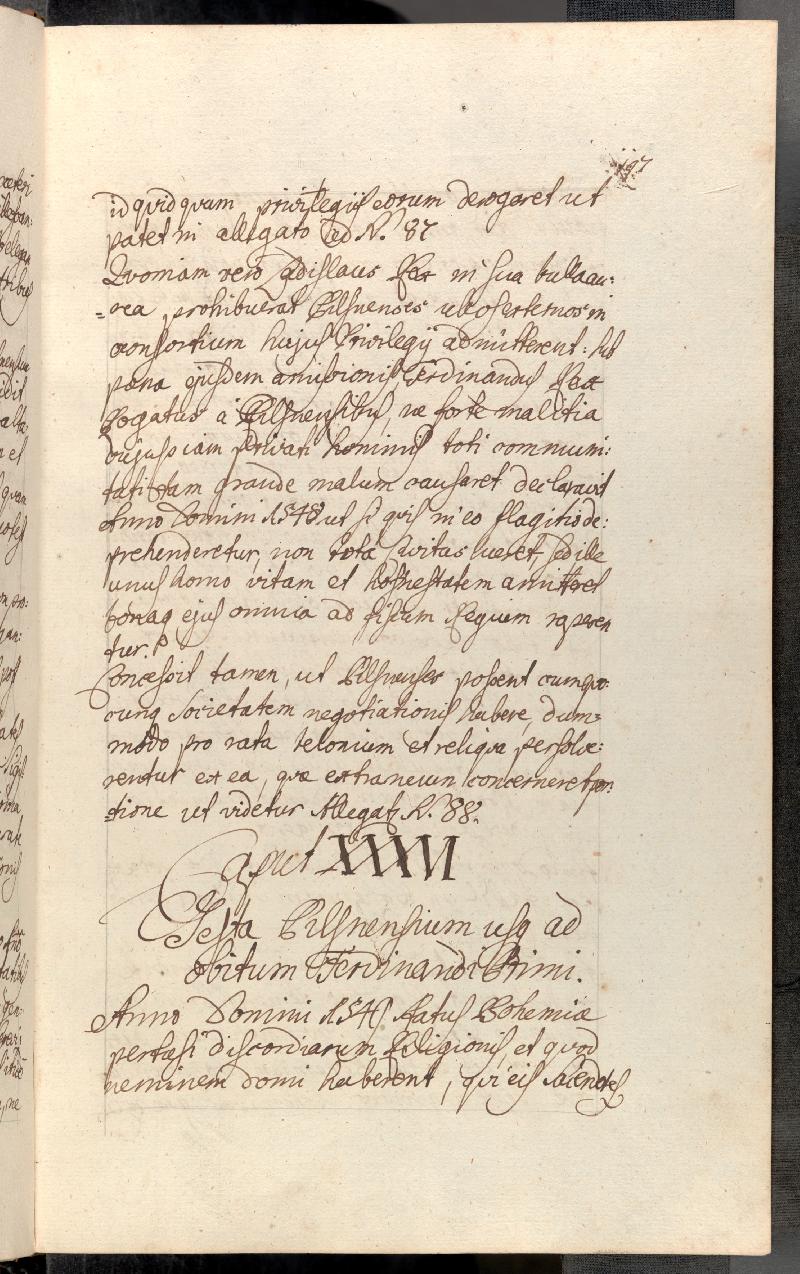 197
id quidquam privilegijs eorum derogaret ut
patet in allegato ad N.º 87
Quoniam vero Ladislaus Rex in sua bulla au:
=rea prohibuerat Pilsnenses ut externos in
consortium hujus Privilegij admitterent: sub
pæna ejusdem amissionis Ferdinandus Rex
Rogatus à Pilsnensibus, ne forte malitia
cujuspiam privati hominis toti communi:
tati tam grande malum causaret declaravit
Anno Domini 1548 ut si quis in eo flagitio de:
prehenderetur, non tota Civitas lueret sed ille
unus homo vitam et honestatem amitteret
bonaq ejus omnia ad fiscum Regium raperen
tur.
Concessit tamen, ut Pilsnenses possent cum quo:
cunq Societatem negotiationis habere, dum=
modo pro rata telonium et reliqua persolve:
rentur ex ea, quæ extraneum concerneret por:
=tione ut videtur Allegat N.º 88.
Caput XXXVI
Gesta Pilsnensium usq ad
obitum Ferdinandi Primi.
Anno Domini Status Bohemiæ
pertæsi discordiarum Religionis, et quod
neminem domi haberent, qui eis